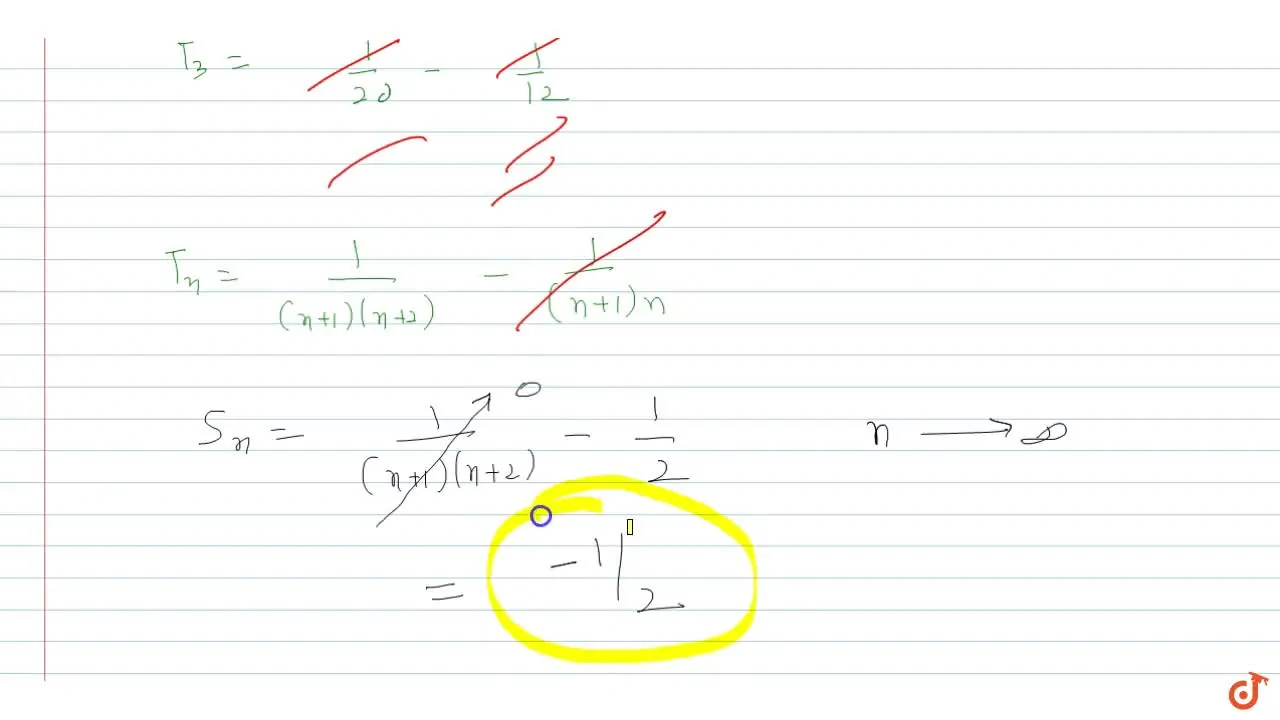 T3 = 1/20 - 1/12
Tn = 1/((n+1)(n+2)) - 1/((n+1)n)
0
Sn = 1/((n+1)(n+2)) - 1/2 n → ∞
= -1/2